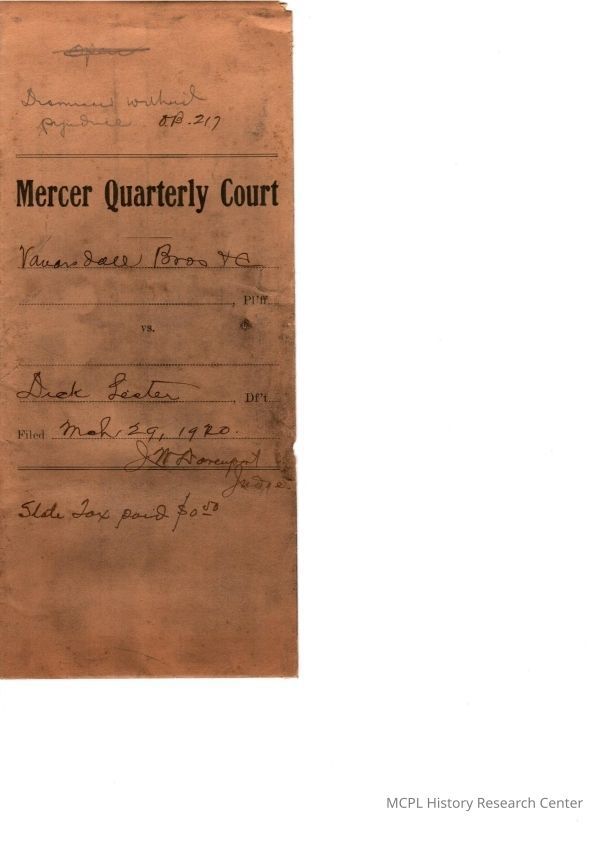 Dismissed without
prejudice OB. 217
Mercer Quarterly Court
Vanarsdall Bros & Co
, Pl'ff.
vs.
Dick Lester, Df't.
Filed Mch. 29, 1920.
J W Davenport
Judge.
State Tax paid $0.50
MCPL History Research Center